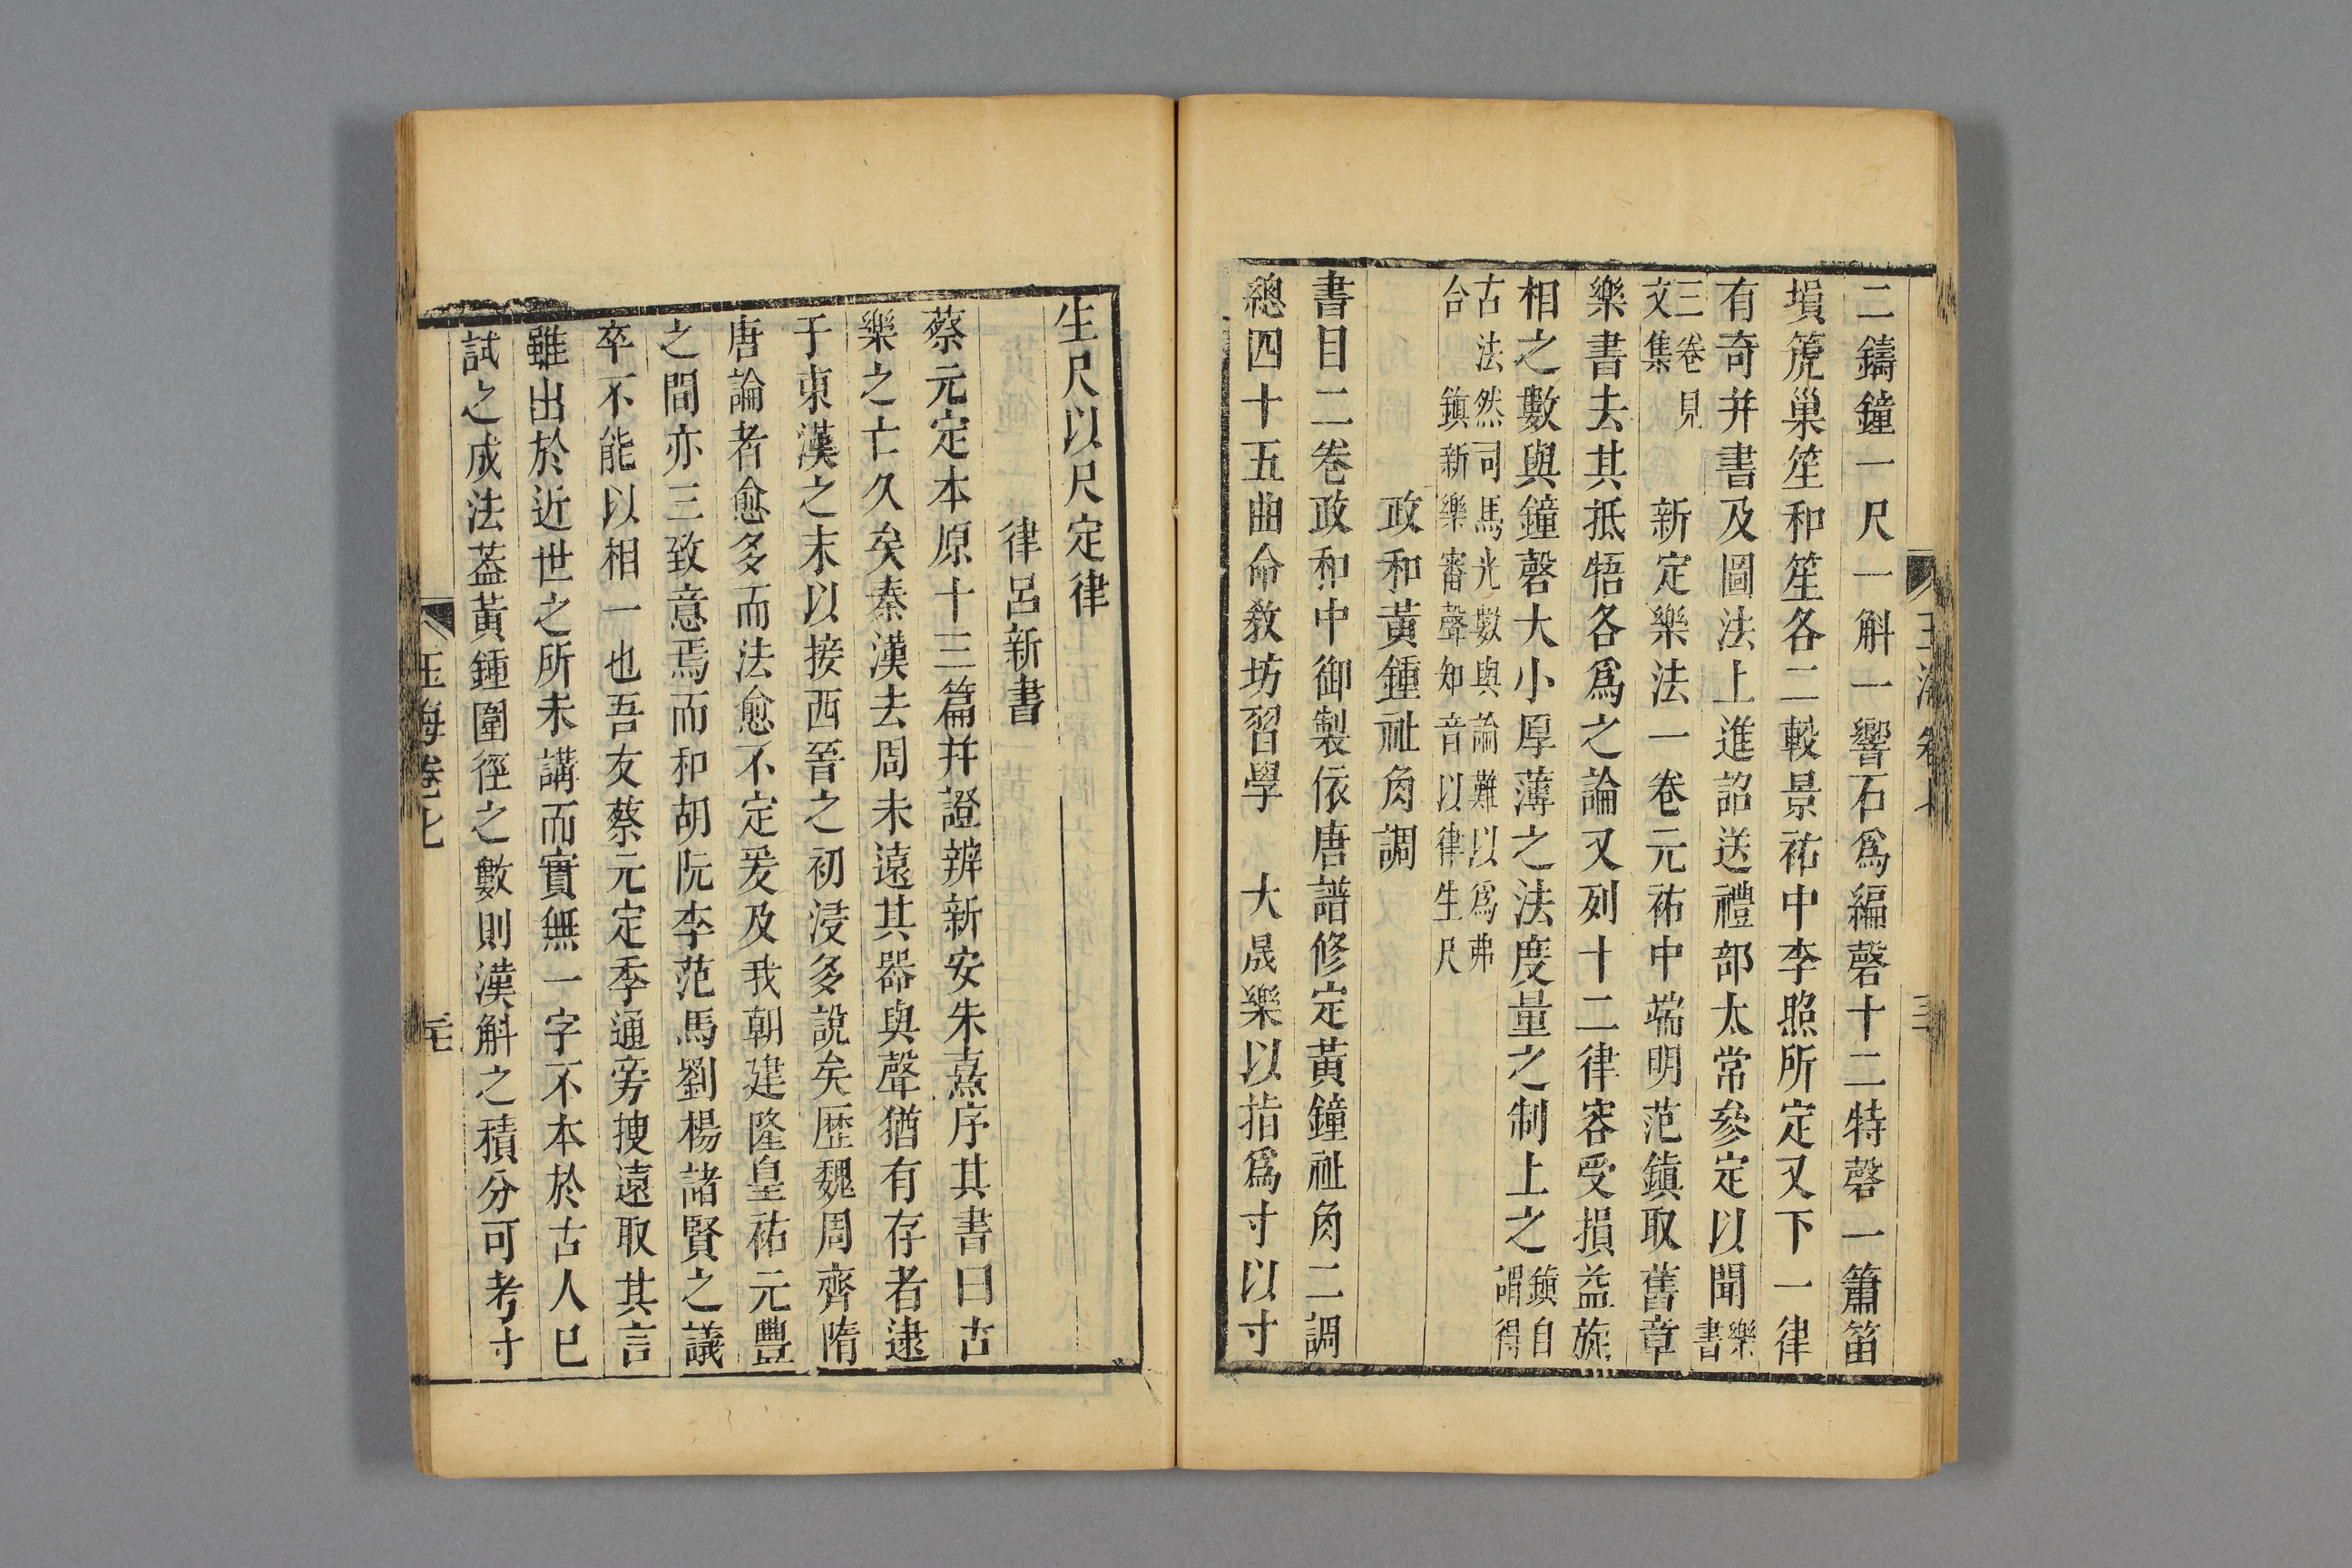 二鑄鐘一尺一斛一響石爲編磬十二特磬一簫笛
塤箎巢笙和笙各二較景祐中李照所定又下一律
有奇并書及圖法上進詔送禮部太常參定以聞樂書
三卷見文集
新定樂法一卷元祐中端明范鎮取舊章
樂書去其抵牾各爲之論又列十二律容受損益旋
相之數與鐘磬大小厚薄之法度量之制上之鎮自謂得
古法然司馬光數與論難以爲弗
合鎮新樂審聲知音以律生尺
政和黃鍾祉角調
書目二卷政和中御製依唐譜修定黃鐘祉角二調
總四十五曲命教坊習學
大晟樂以指爲寸以寸
生尺以尺定律
律呂新書
蔡元定本原十三篇并證辨新安朱熹序其書曰古
樂之亡久矣秦漢去周未遠其器與聲猶有存者逮
于東漢之末以接西晉之初浸多說矣歷魏周齊隋
唐論者愈多而法愈不定爰及我朝建隆皇祐元豐
之間亦三致意焉而和胡阮李范馬劉楊諸賢之議
卒不能以相一也吾友蔡元定季通旁搜遠取其言
雖出於近世之所未講而實無一字不本於古人巳
試之成法葢黃鍾圍徑之數則漢斛之積分可考寸
玉海卷七